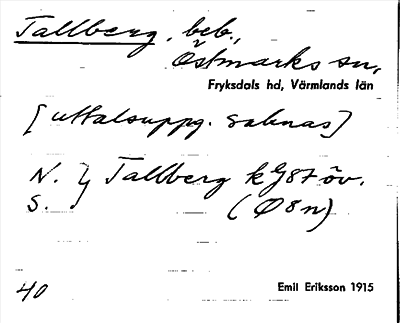 Tallberg, beb.,
Östmarks sn,
Fryksdals hd, Värmlands län
[uttalsuppg. saknas]
N. } Tallberg k G87 öv.
S. (Ø8n)
40 Emil Eriksson 1915